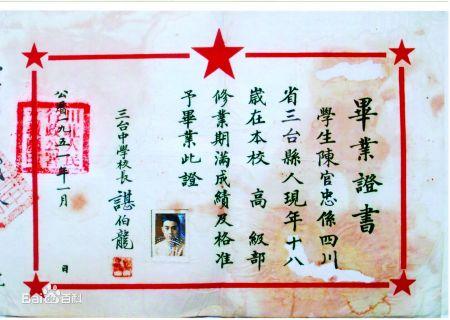 畢業證書
學生陳官忠係四川
省三台縣人現年十八
歲在本校 高級部
修業期滿成績及格准
予畢業此證
三台中学校長 諶伯龍
公曆一九五一年一月 日
Bai百科